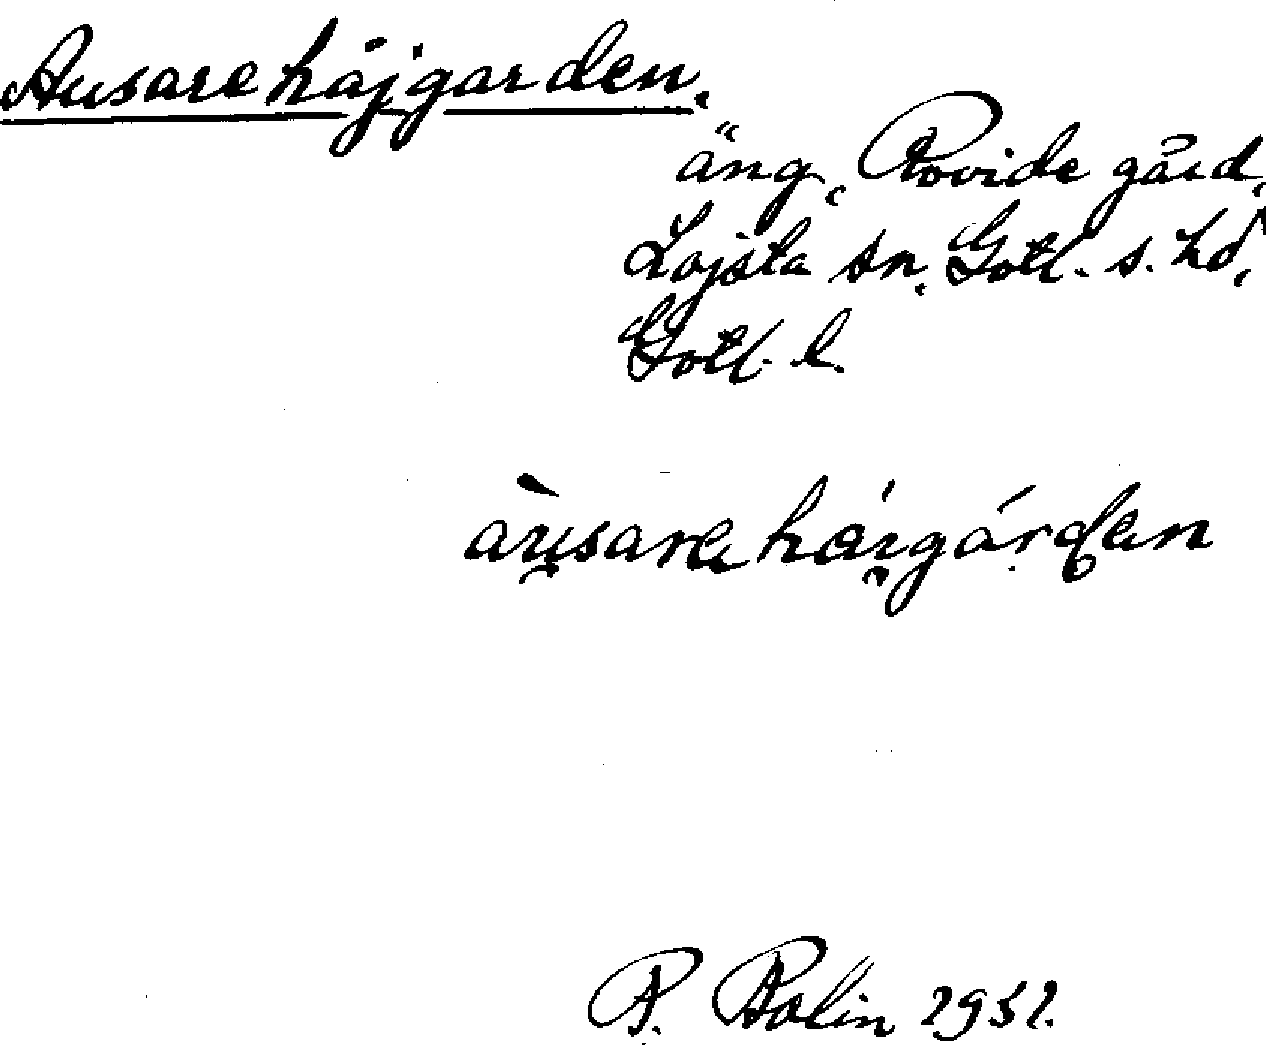 Ausare håjgarden.
äng, Rovide gård,
Lojsta sn, Gotl. s. hd,
Gotl. l.
àu̯sara hái̯gárdan
P. Bolin 1931.